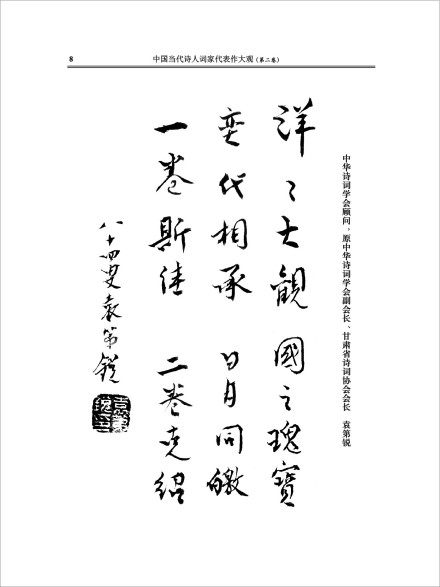 8 中国当代诗人词家代表作大观（第二卷）
中华诗词学会顾问、原中华诗词学会副会长、甘肃省诗词协会会长 袁第锐
洋〻大觀 國之瑰寶
奕代相承 日月同皦
一卷斯佳 二卷克紹
八十四叟袁第銳